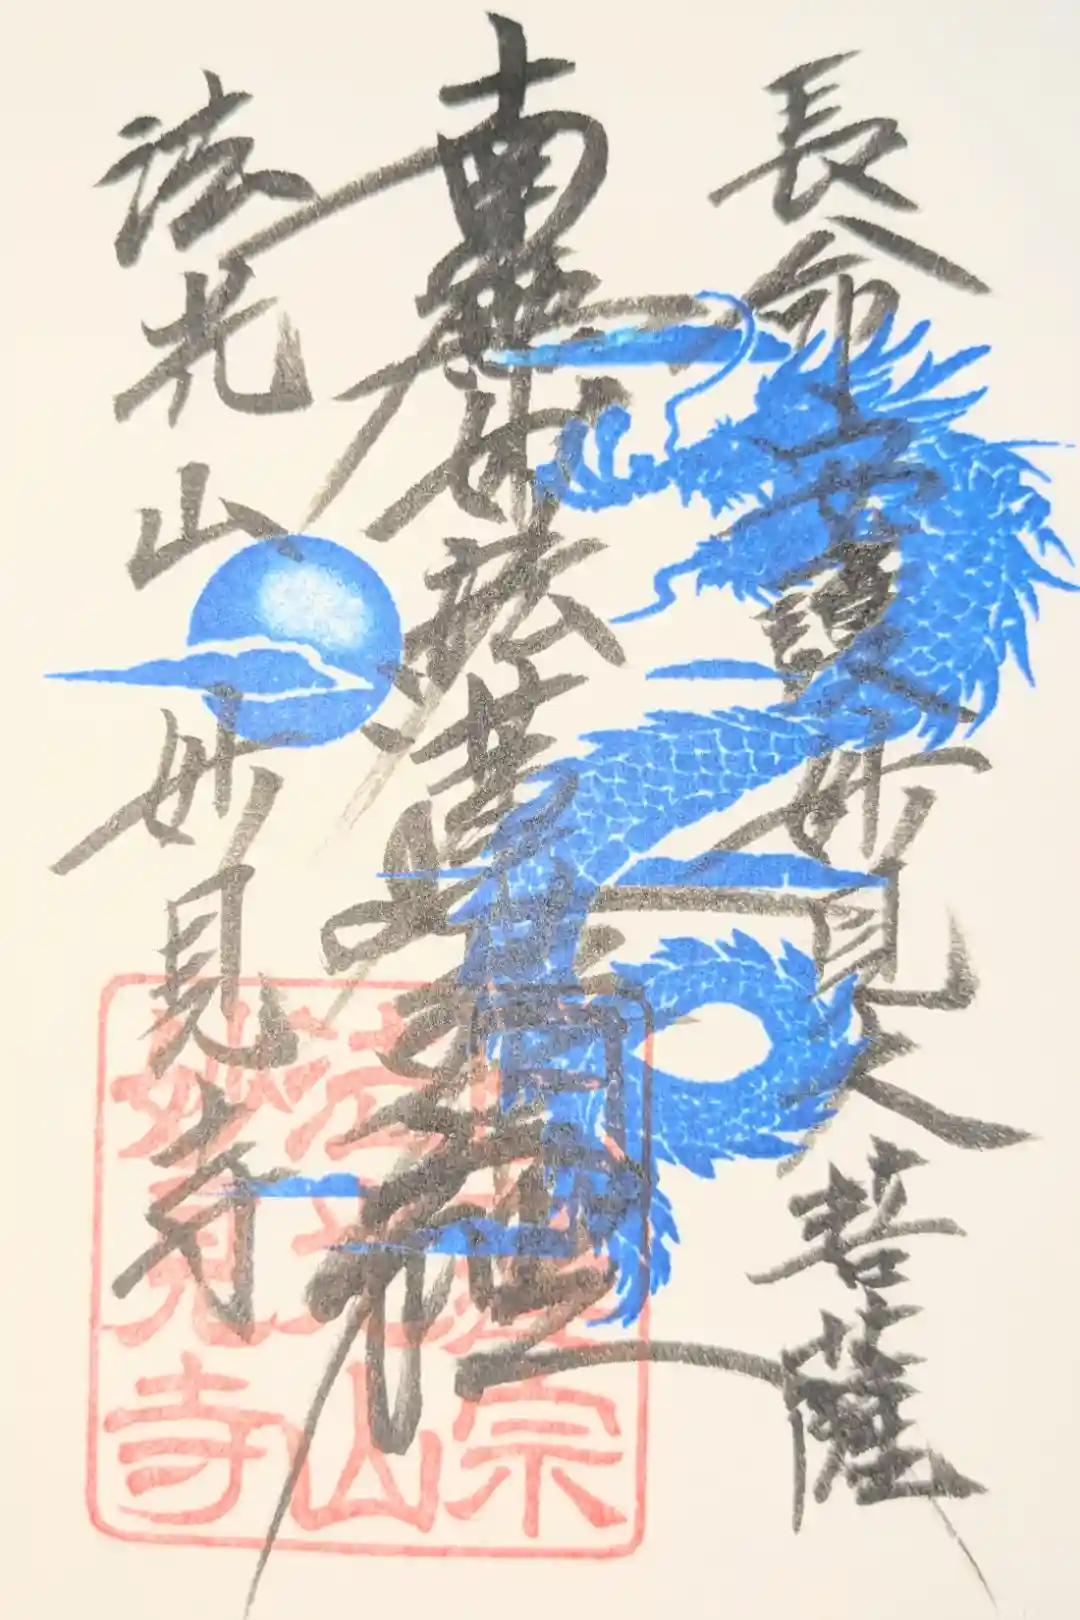 長命守護妙見大菩薩
南無妙法蓮華經
法光山 妙見寺
日蓮宗
法光山
妙見寺